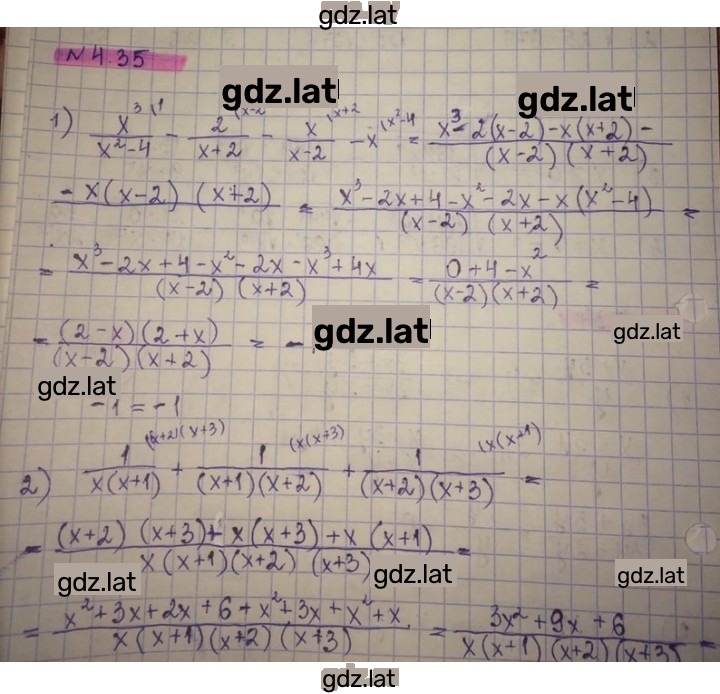 gdz.lat
№ 4.35
gdz.lat
gdz.lat
1) x³/(x²-4) (1 - 2/(x+2) (x-2 - x/(x-2) (x+2 - x (x²-4 = x³-2(x-2)-x(x+2)-
/(x-2)(x+2)
-x(x-2)(x+2) = (x³-2x+4-x²-2x-x(x²-4))/((x-2)(x+2)) =
= (x³-2x+4-x²-2x-x³+4x)/((x-2)(x+2)) = (0+4-x²)/((x-2)(x+2)) =
gdz.lat
gdz.lat
= ((2-x)(2+x))/((x-2)(x+2)) = -
gdz.lat
-1 = -1
2) 1/(x(x+1)) (x+2)(x+3) + 1/((x+1)(x+2)) (x(x+3) + 1/((x+2)(x+3)) (x(x+1) =
= ((x+2)(x+3)+x(x+3)+x(x+1))/(x(x+1)(x+2)(x+3)) =
gdz.lat
gdz.lat
gdz.lat
= (x²+3x+2x+6+x²+3x+x²+x)/(x(x+1)(x+2)(x+3)) = (3x²+9x+6)/(x(x+1)(x+2)(x+3) =
gdz.lat